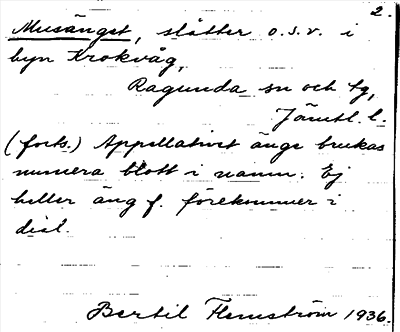 2.
Musänget, slåtter o.s.v. i
byn Krokvåg,
Ragunda sn och tg,
Jämtl. l.
(forts.) Appellativet änge brukas
numera blott i namn. Ej
heller äng f. förekommer i
dial.
Bertil Flemström 1936.